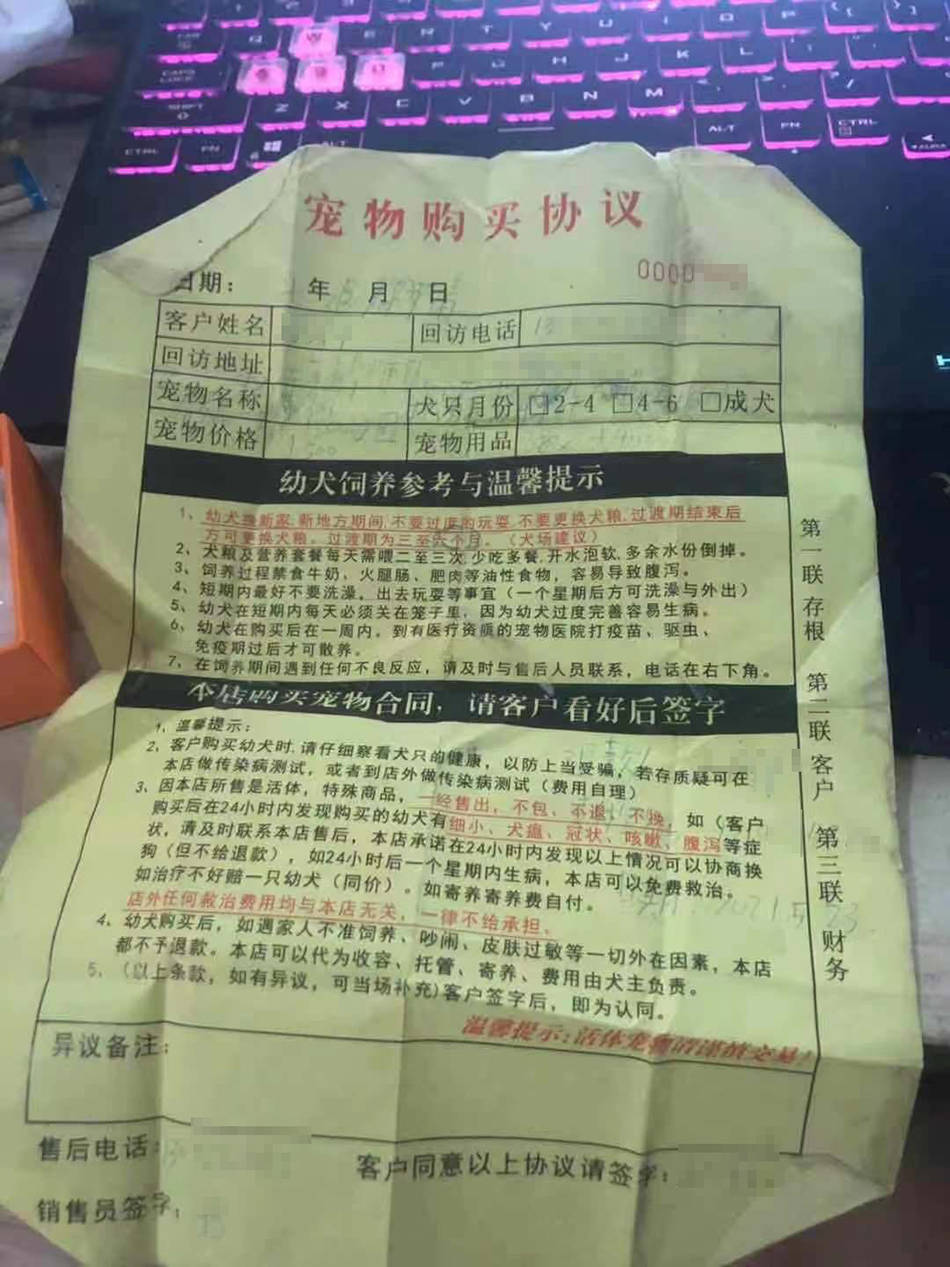 TAB Q W E
CAPS LOCK F G H J K L
SHIFT Z X C V B N M
CTRL FN ALT ALT FN CTRL
宠物购买协议
0000
日期： 年 5 月 日
客户姓名 回访电话 13
回访地址
宠物名称 犬只月份 □2-4 □4-6 □成犬
宠物价格 1500 宠物用品
幼犬饲养参考与温馨提示
1、幼犬换新家,新地方期间,不要过度的玩耍,不要更换犬粮,过渡期结束后
方可更换犬粮。过渡期为三至六个月。（犬场建议）
2、犬粮及营养套餐每天需喂二至三次,少吃多餐,开水泡软,多余水份倒掉。
3、饲养过程禁食牛奶、火腿肠、肥肉等油性食物，容易导致腹泻。
4、短期内最好不要洗澡。出去玩耍等事宜（一个星期后方可洗澡与外出）
5、幼犬在短期内每天必须关在笼子里，因为幼犬过度完善容易生病。
6、幼犬在购买后在一周内。到有医疗资质的宠物医院打疫苗、驱虫、
免疫期过后才可散养。
7、在饲养期间遇到任何不良反应，请及时与售后人员联系，电话在右下角。
本店购买宠物合同，请客户看好后签字
1、温馨提示：
2、客户购买幼犬时,请仔细察看犬只的健康，以防上当受骗，若存质疑可在
本店做传染病测试，或者到店外做传染病测试（费用自理）
3、因本店所售是活体，特殊商品，一经售出，不包、不退、不换，如（客户
购买后在24小时内发现购买的幼犬有细小、犬瘟、冠状、咳嗽、腹泻等症
状，请及时联系本店售后，本店承诺在24小时内发现以上情况可以协商换
狗（但不给退款），如24小时后一个星期内生病，本店可以免费救治。
如治疗不好赔一只幼犬（同价）。如寄养寄养费自付。
2021.5 23
店外任何救治费用均与本店无关，一律不给承担。
4、幼犬购买后，如遇家人不准饲养、吵闹、皮肤过敏等一切外在因素，本店
都不予退款。本店可以代为收容、托管、寄养、费用由犬主负责。
5、（以上条款，如有异议，可当场补充)客户签字后，即为认同。
温馨提示：活体宠物请谨慎交易！
第一联 存根 第二联 客户 第三联 财务
异议备注：
售后电话：
客户同意以上协议请签字：
销售员签字：